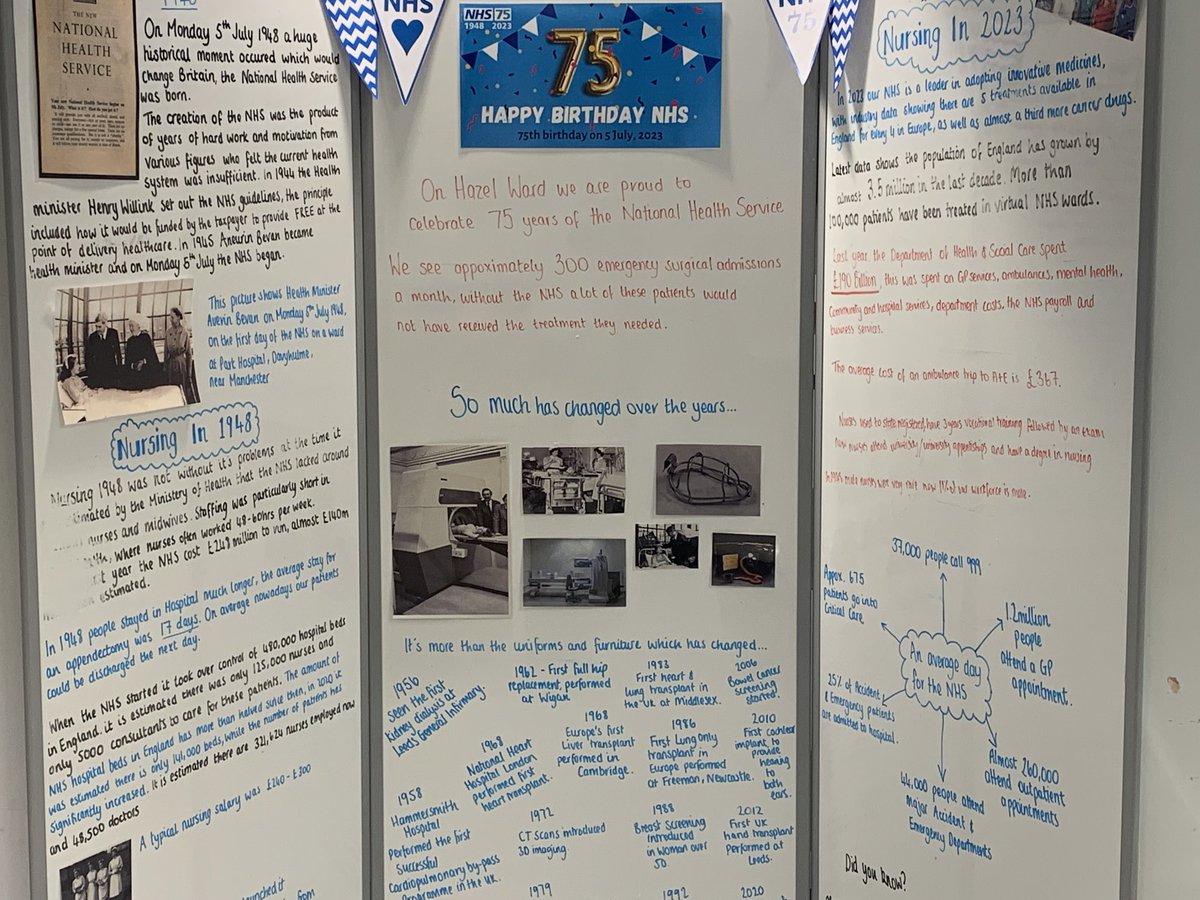 THE NEW
NATIONAL
HEALTH
SERVICE
On Monday 5th July 1948 a huge
historical moment occured which would
change Britain, the National Health Service
was born.
The creation of the NHS was the product
of years of hard work and motivation from
various figures who felt the current health
system was insufficient. in 1944 the Health
minister Henry Willink set out the NHS guidelines, the principle
included how it would be funded by the taxpayer to provide FREE at the
point of delivery healthcare. In 1945 Aneurin Bevan became
health minister and on Monday 5th July the NHS began.
This picture shows Health Minister
on Monday 5th July 1948,
on the first day of the NHS on a ward
at Park Hospital, Davyhulme,
near Manchester
Nursing In 1948
Nursing 1948 was not without it's problems at the time it
estimated by the Ministry of Health that the NHS lacked around
nurses and midwives. Staffing was particularly short in
where nurses often worked 48-60hrs per week.
year the NHS cost £248 million to run, almost £140m
estimated.
In 1948 people stayed in Hospital much longer, the average stay for
an appendectomy was 17 days. On average nowadays our patients
could be discharged the next day.
When the NHS started it took over control of 480,000 hospital beds
in England. it is estimated there was only 125,000 nurses and
only 5000 consultants to care for these patients. The amount of
NHS hospital beds in England has more than halved since then, in 2020 it
was estimated there is only 141,000 beds, while the number of patients has
significantly increased. It is estimated there are 321,624 nurses employed now
and 48,500 doctors
A typical nursing salary was £240 - £300
launched it
from
NHS
NHS 75
1948 2023
75
HAPPY BIRTHDAY NHS
75th birthday on 5 July, 2023
NHS
75
On Hazel Ward we are proud to
celebrate 75 years of the National Health Service
We see appoximately 300 emergency surgical admissions
a month, without the NHS a lot of these patients would
not have received the treatment they needed.
So much has changed over the years...
It's more than the uniforms and furniture which has changed...
1956
Seen the first
kidney dialysis at
Leeds General Infirmary.
1958
Hammersmith
Hospital
performed the first
Successful
Cardiopulmonary by-pass
Programme in the UK.
1962 - First full hip
replacement, performed
at Wigan
1968
National Heart
Hospital London
performed first
heart transplant.
1968
Europe's first
Liver transplant
performed in
Cambridge.
1972
CT Scans introduced
3D imaging.
1979
1983
First heart &
lung transplant in
the UK at Middlesex.
1986
First Lung only
transplant in
Europe performed
at Freeman, Newcastle.
1988
Breast Screening
introduced
in Woman over
50.
1992
2006
Bowel cancer
screening
started.
2010
First cochlear
implant, to
provide
hearing
to
both
ears.
2012
First UK
hand transplant
performed at
Leeds.
2020
Nursing In 2023
In 2023 our NHS is a leader in adopting innovative medicines,
with industry data showing there are 5 treatments available in
England for every 4 in Europe, as well as almost a third more cancer drugs.
Latest data shows the population of England has grown by
almost 3.5 million in the last decade. More than
100,000 patients have been treated in virtual NHS wards.
Last year the Department of Health & Social Care spent
£190 Billion, this was spent on GP services, ambulances, mental health,
community and hospital services, department costs, the NHS payroll and
business services.
The average cost of an ambulance trip to A+E is £367.
Nurses used to state registered, have 3 years vocational training followed by an exam
now nurses attend university/university apprenticeships and have a degree in nursing
male nurses were very rare now of our workforce is male.
An average day
for the NHS
37,000 people call 999
1.2million
people
attend a GP
appointment.
Almost 260,000
attend outpatient
appointments
44,000 people attend
Major Accident &
Emergency Departments
25% of Accident
& Emergency patients
are admitted to hospital.
Appox. 675
patients go into
Critical Care
Did you know?